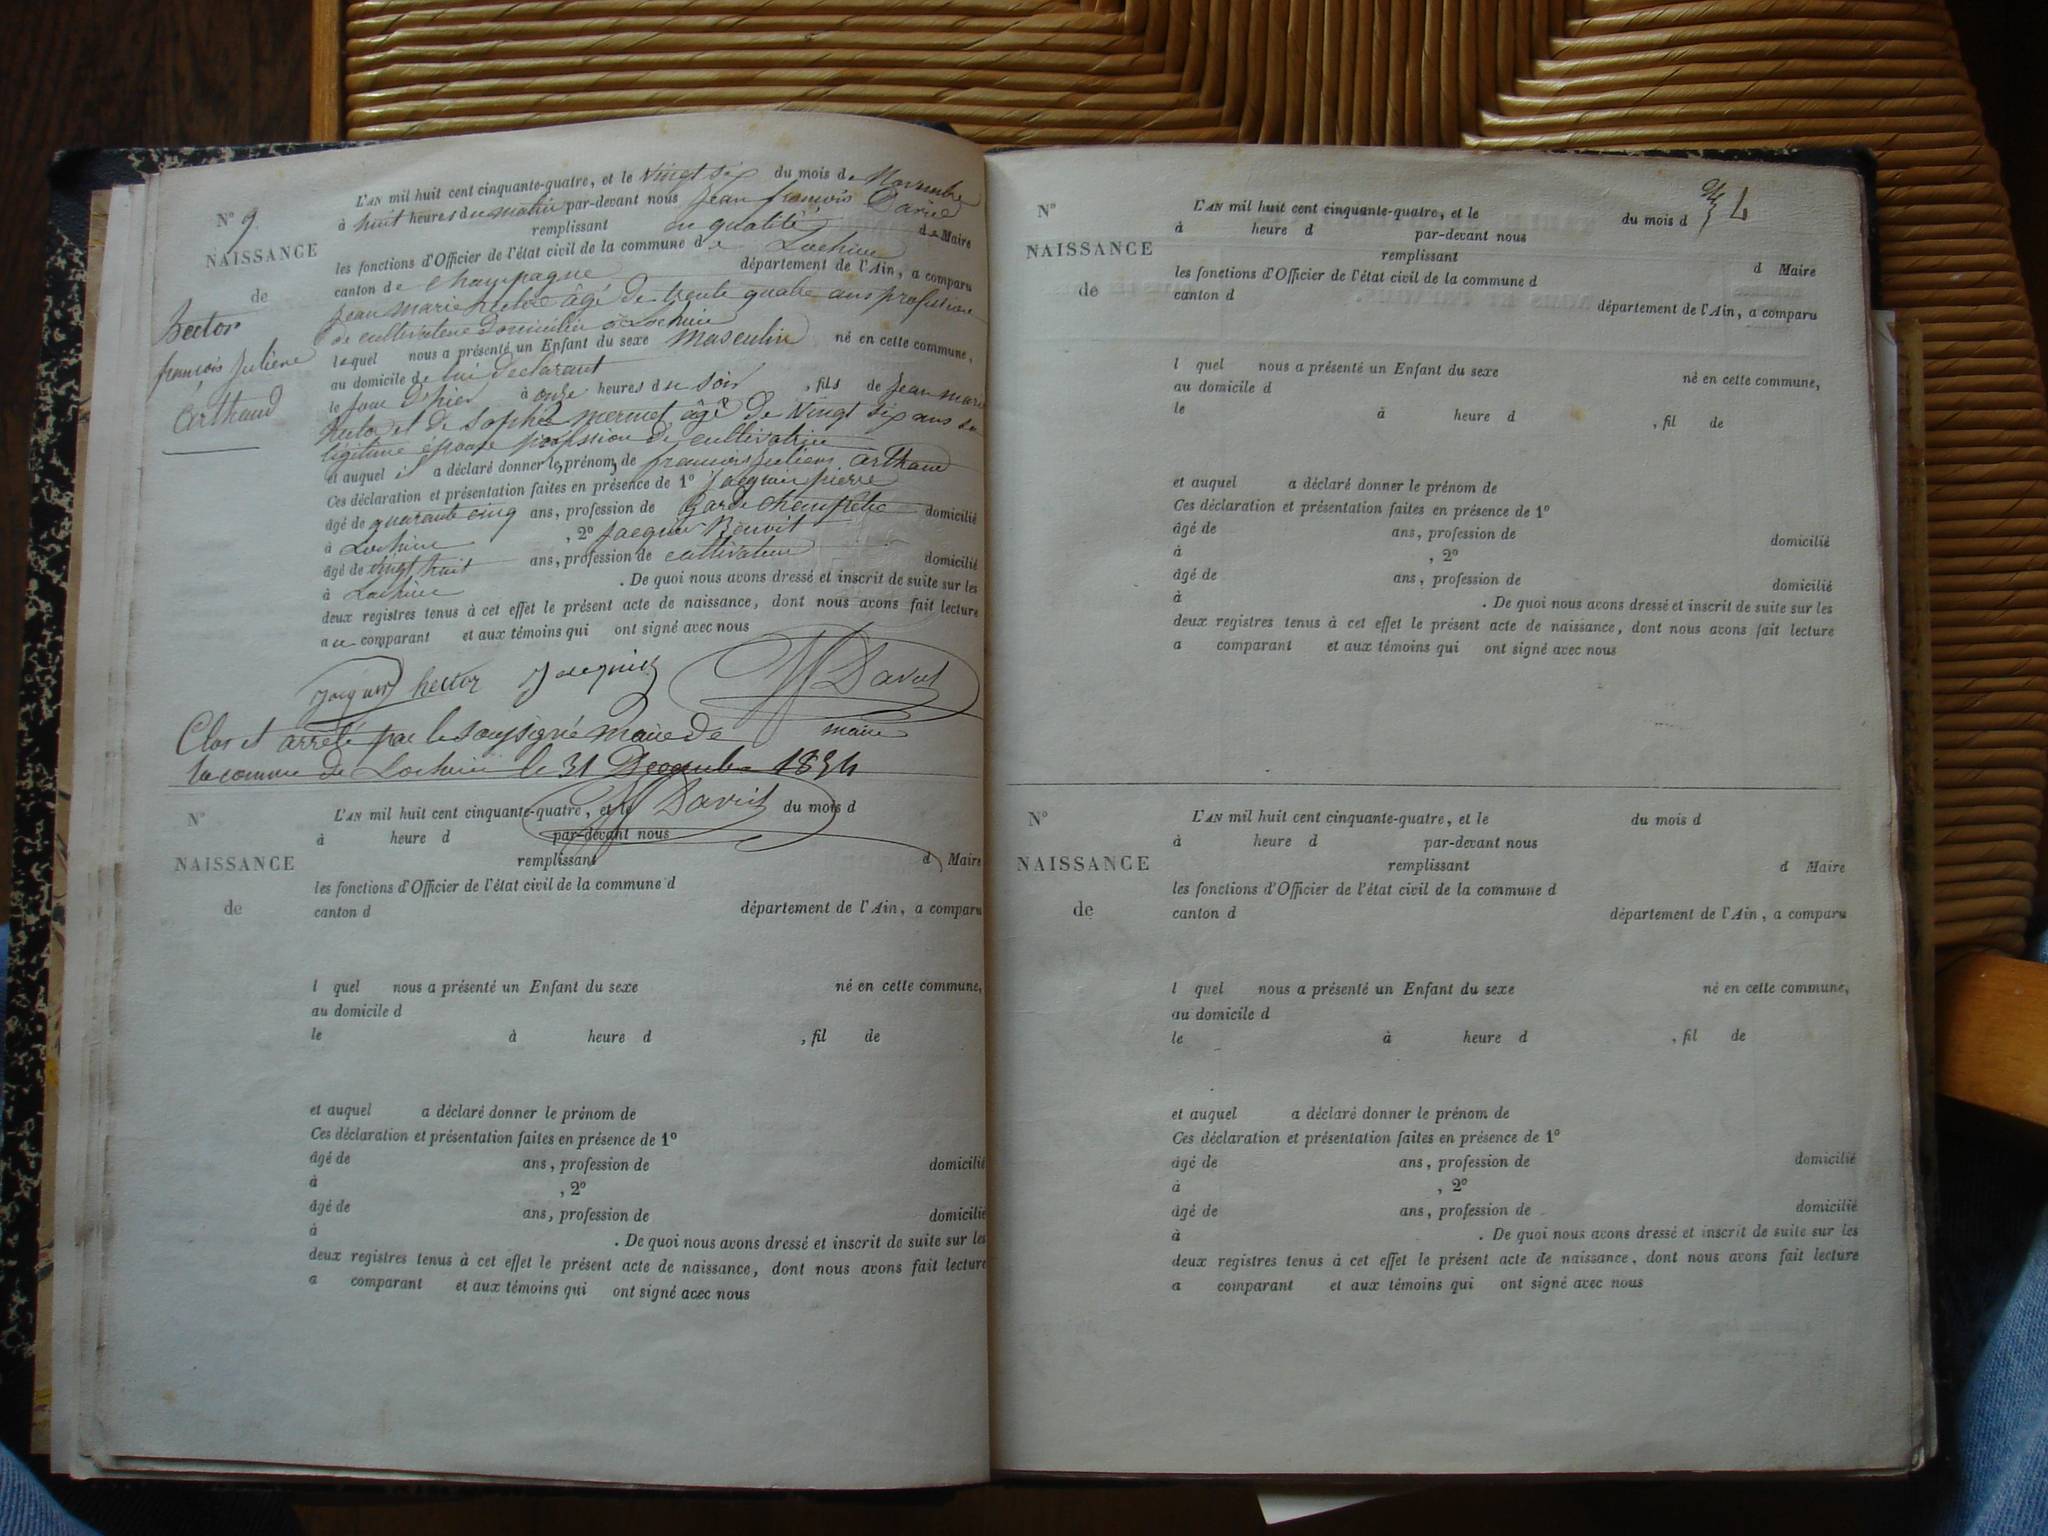 N° 9
NAISSANCE
de
hector
françois Juliens
Arthaud
L'AN mil huit cent cinquante-quatre, et le vingt six du mois de Novembre
à huit heures du matin par-devant nous Jean françois David
remplissant en qualité de Maire
les fonctions d'Officier de l'état civil de la commune de Lochieu
canton de champagne département de l'Ain, a comparu
Jean marie hector âgé de trente quatre ans profession
de cultivateur domicilié à Lochieu
lequel nous a présenté un Enfant du sexe masculin né en cette commune,
au domicile de lui déclarant
le jour d'hier à onze heures du soir, fils de Jean marie
hector et de Sophie mermet âgé de vingt six ans sa
légitime épouse profession de cultivatrice
et auquel il a déclaré donner le prénom de françois Juliens Arthaud
Ces déclaration et présentation faites en présence de 1° Jacquin pierre
âgé de quarante cinq ans, profession de garde champêtre domicilié
à Lochieu, 2° Jacquin Benoit
âgé de vingt huit ans, profession de cultivateur domicilié
à Lochieu. De quoi nous avons dressé et inscrit de suite sur les
deux registres tenus à cet effet le présent acte de naissance, dont nous avons fait lecture
au comparant et aux témoins qui ont signé avec nous
Jacquin hector Jacquin David
maire
Clos et arrêté par le soussigné maire de
la comune de Lochieu le 31 Decembre 1854
David
N°
NAISSANCE
de
L'AN mil huit cent cinquante-quatre, et le du mois d
à heure d par-devant nous
remplissant d Maire
les fonctions d'Officier de l'état civil de la commune d
canton d département de l'Ain, a comparu
l quel nous a présenté un Enfant du sexe né en cette commune,
au domicile d
le à heure d , fil de
et auquel a déclaré donner le prénom de
Ces déclaration et présentation faites en présence de 1°
âgé de ans, profession de domicilié
à , 2°
âgé de ans, profession de domicilié
à . De quoi nous avons dressé et inscrit de suite sur les
deux registres tenus à cet effet le présent acte de naissance, dont nous avons fait lecture
a comparant et aux témoins qui ont signé avec nous
7
N°
NAISSANCE
de
L'AN mil huit cent cinquante-quatre, et le du mois d
à heure d par-devant nous
remplissant d Maire
les fonctions d'Officier de l'état civil de la commune d
canton d département de l'Ain, a comparu
l quel nous a présenté un Enfant du sexe né en cette commune,
au domicile d
le à heure d , fil de
et auquel a déclaré donner le prénom de
Ces déclaration et présentation faites en présence de 1°
âgé de ans, profession de domicilié
à , 2°
âgé de ans, profession de domicilié
à . De quoi nous avons dressé et inscrit de suite sur les
deux registres tenus à cet effet le présent acte de naissance, dont nous avons fait lecture
a comparant et aux témoins qui ont signé avec nous
N°
NAISSANCE
de
L'AN mil huit cent cinquante-quatre, et le du mois d
à heure d par-devant nous
remplissant d Maire
les fonctions d'Officier de l'état civil de la commune d
canton d département de l'Ain, a comparu
l quel nous a présenté un Enfant du sexe né en cette commune,
au domicile d
le à heure d , fil de
et auquel a déclaré donner le prénom de
Ces déclaration et présentation faites en présence de 1°
âgé de ans, profession de domicilié
à , 2°
âgé de ans, profession de domicilié
à . De quoi nous avons dressé et inscrit de suite sur les
deux registres tenus à cet effet le présent acte de naissance, dont nous avons fait lecture
a comparant et aux témoins qui ont signé avec nous